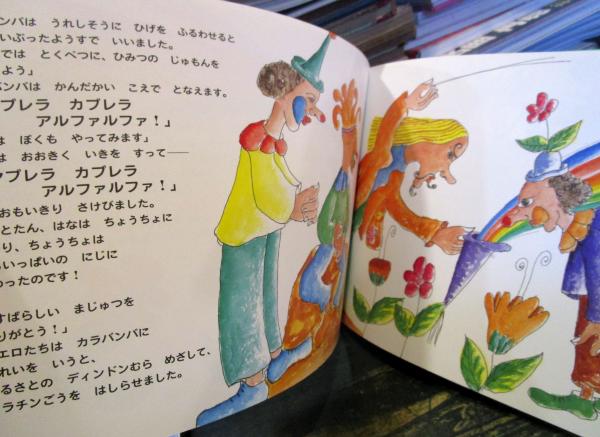 ンバは うれしそうに ひげを ふるわせると
いぶったようすで いいました。
では とくべつに、ひみつの じゅもんを
よう」
バンバは かんだかい こえで となえます。
ブレラ カブレラ
アルファルファ！」
は ぼくも やってみます」
は おおきく いきを すって——
ブレラ カブレラ
アルファルファ！」
おもいきり さけびました。
とたん、はなは ちょうちょに
り、ちょうちょは
いっぱいの にじに
わったのです！
すばらしい まじゅつを
りがとう！」
エロたちは カラバンバに
れいを いうと、
るさとの ディンドンむら めざして、
ラチンごうを はしらせました。